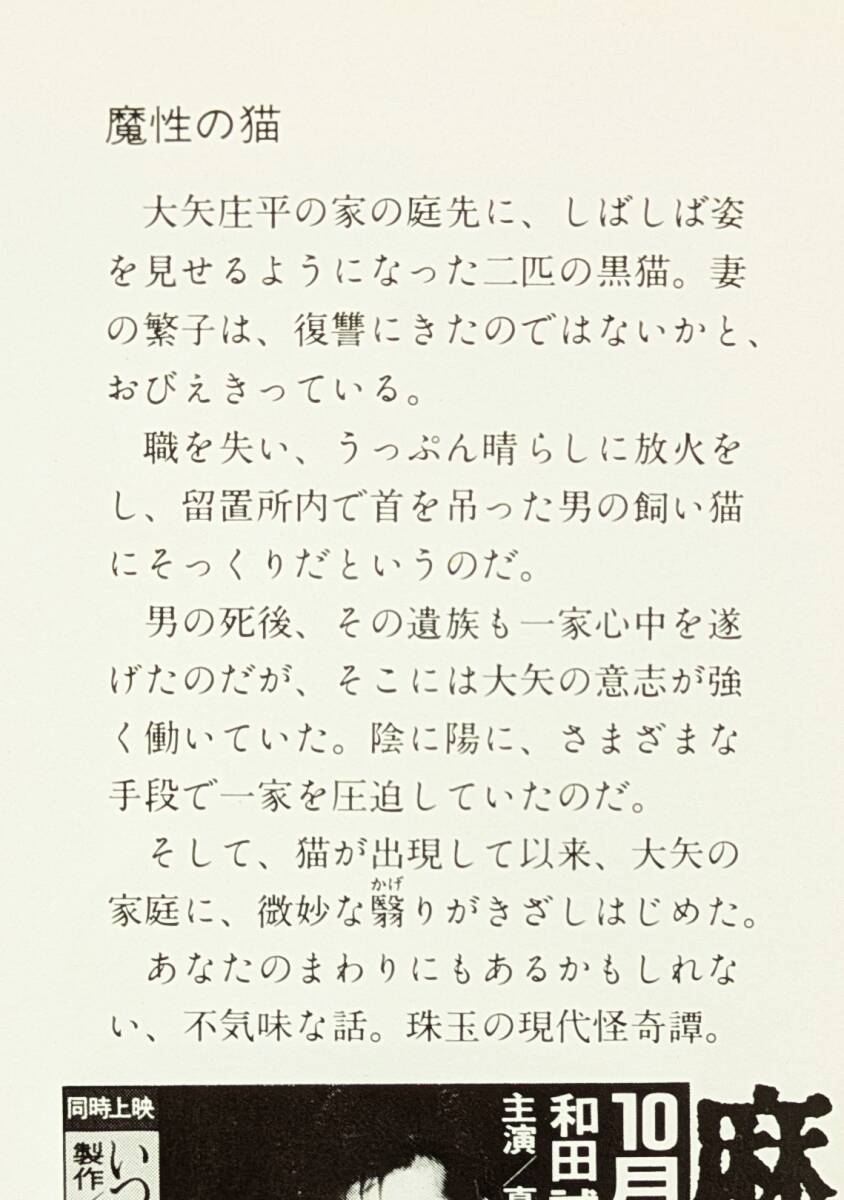 魔性の猫
大矢庄平の家の庭先に、しばしば姿
を見せるようになった二匹の黒猫。妻
の繁子は、復讐にきたのではないかと、
おびえきっている。
職を失い、うっぷん晴らしに放火を
し、留置所内で首を吊った男の飼い猫
にそっくりだというのだ。
男の死後、その遺族も一家心中を遂
げたのだが、そこには大矢の意志が強
く働いていた。陰に陽に、さまざまな
手段で一家を圧迫していたのだ。
そして、猫が出現して以来、大矢の
かげ
家庭に、微妙な翳りがきざしはじめた。
あなたのまわりにもあるかもしれな
い、不気味な話。珠玉の現代怪奇譚。
10月
和田誠
主演／真
同時上映
いつ
製作／